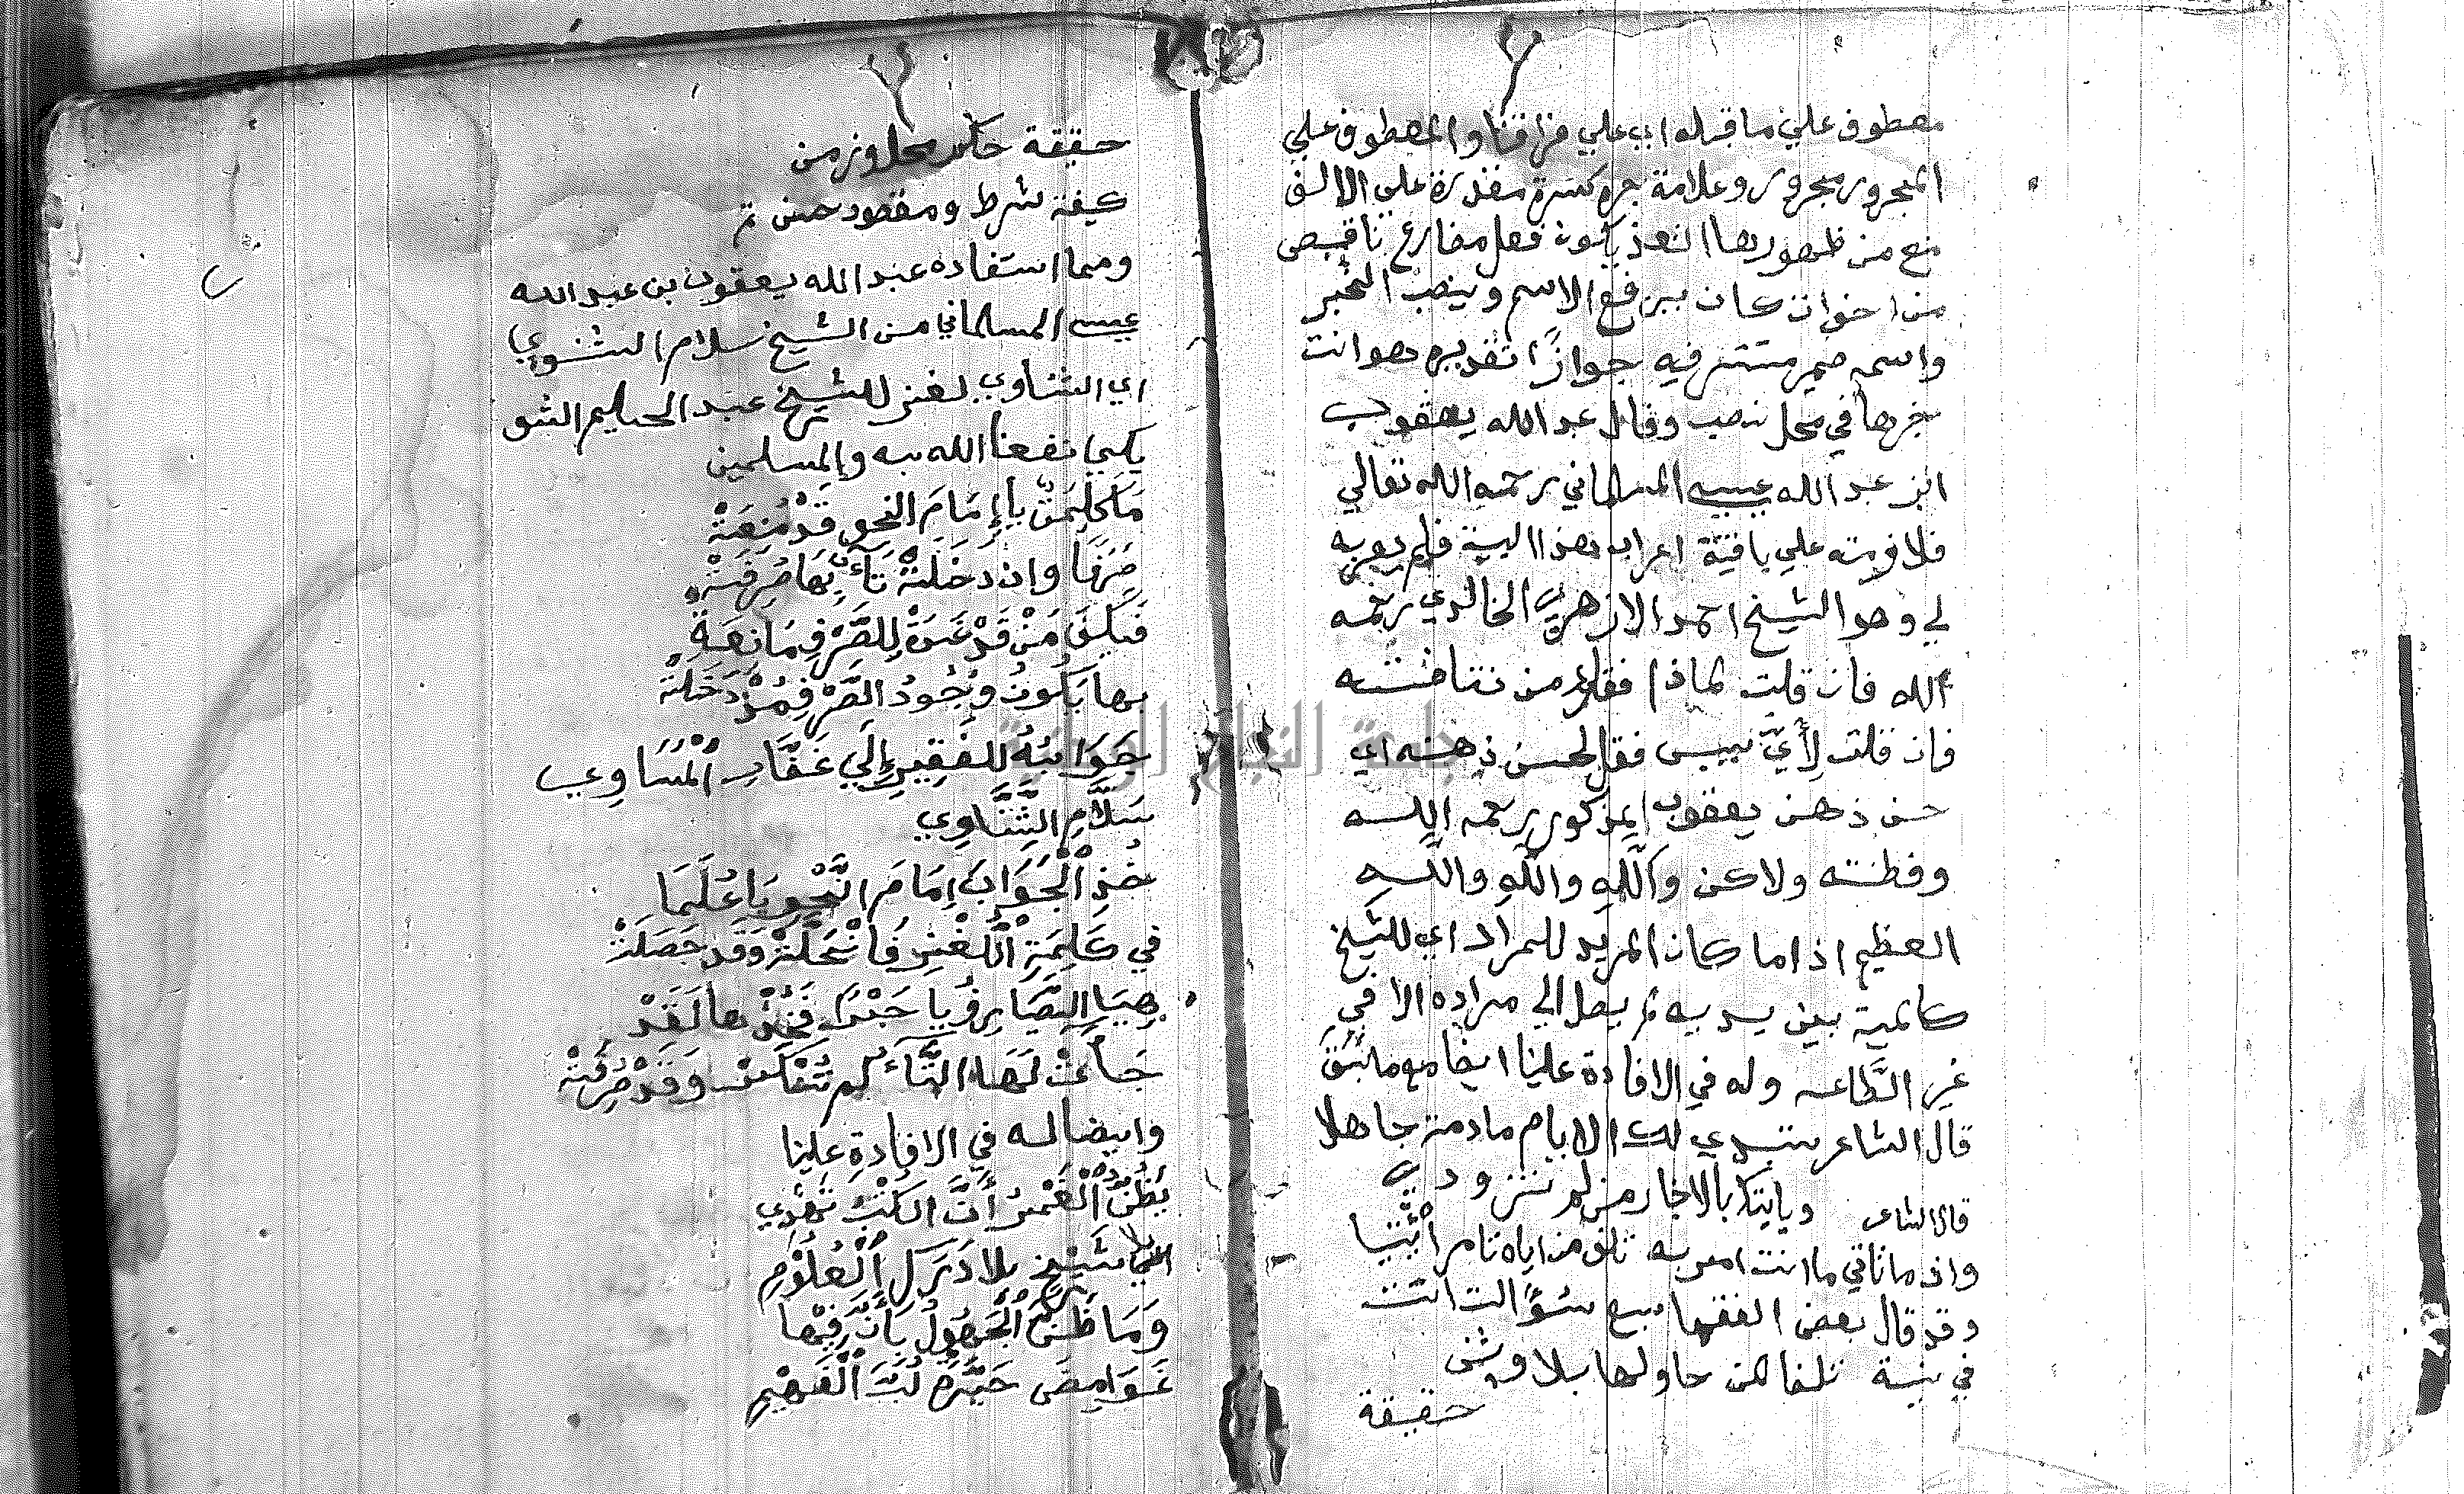 معطوف علي ما قبله اي علي مرافقنا والمعطوف علي
المجرور مجرور وعلامة جره كسرة مقدرة علي الالف
منع من ظهورها التعذ يكون فعل مضارع ناقص
من اخوان كان يرفع الاسم وينصب الخبر
واسمه ضمير مستتر فيه جوازًا تقديره هو انت
خبرها في محل نصب وقال عبد الله يعقوب
ابن عبد الله عيسي المسلماني رحمه الله تعالي
علي اعراب هذا البيت فلم يعربه
لي وهو الشيخ احمد الازهري الخالدي رحمه
الله فان قلت لماذا فقل من
فان قلت لأيّ فقل لحسن ذهنه اي
حسن ذهن يعقوب المذكور رحمه الله
وفطنته ولاكن واللّهِ واللّهِ واللّهِ
العظيم اذا ما كان المريد للمراد اي للشيخ
كالميت بين يديه لم يصل الي مراده الا في
غير الطاعه وله في الافادة علينا ايضا مع ما سبق
قال الشاعر ستبدي لك الايام ما دمت جاهلا
وياتيك بالاخبار من لم تزود
قال الشاعر
واذ ما تاتي ما انت امر به تلف من اياه تامر اتيا
وقد قال بعض الفقها بيع
في بنية حاولها بلا
حقيقة
حقيقة حكم محل وزمن
كيفة شرط ومقصود حسن
ومما استفاده عبد الله يعقوب بن عبد الله
عيسي المسلماني من الشيخ سلام الشنوي
اي الشناوي لغز للشيخ عبد الحليم الشو
يكي نفعنا الله به والمسلمين
مَا كَلِمَةٌ يا إِمَامَ النحوِ قَدْ مُنِعَتْ
صَرْفًا وان دَخَلَتْ تَاءٌ بِهَا صُرِفَتْ
فَكَيْفَ مَنْ قَدْ غَدَتْ لِلصَّرْفِ مَانِعَةً
بها يَكُونُ وُجُودُ الصَّرْفِ مُذْ دَخَلَتْ
جَوَابُهُ للفَقِيرِ إِلَي غَفَّارِ اْلمَسَاوِي
سَلَّامِ الشَّنَّاوِي
خُذِ اْلجَوَابَ إِمَامَ النَّحْوِ يَا عَلَمَا
في كَلِمَةِ اللُّغْزِ فَانْحَلَّتْ وَقَد حَصَلَتْ
هِيَ الصَّيَارِفُ يا حَبْرًا فَخُذْها لَقَدْ
جَاءَتْ لَهَا التَّاءُ لم تُنْكَرْ وَقَدْ صُرِفَتْ
وايضا له في الافادةِ علينا
يَظُنُّ اْلغَمْرُ أَنَّ الكُتْبَ تَهْدِي
بلا شَيْخٍ بلا دَرَكِ اْلعُلُوْمِ
وَمَا ظَنَّ اْلجَهُولُ بِأَنَّ فِيْها
غَوَامِضَ حَيَّرَة لُبَّ اْلفَهِيْمِ